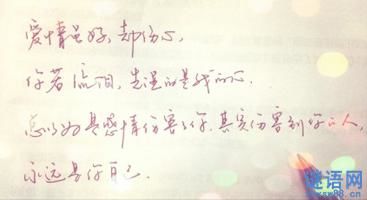 爱情虽好,却伤心,
你若流泪,先湿的是我的心.
总以为是感情伤害了你.其实伤害到你的人,
永远是你自己.
谜语网